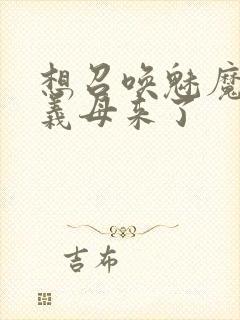 想召唤魅魔
义母来了
吉布